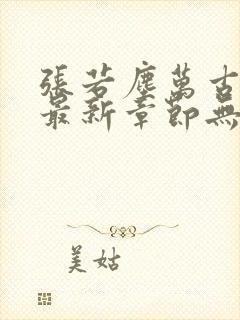 張若塵萬古
最新章節無
美姑